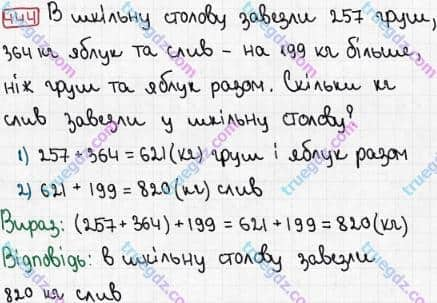 444 В шкільну столову завезли 257 груш,
364 кг яблук та слив - на 199 кг більше,
ніж груш та яблук разом. Скільки кг
слив завезли у шкільну столову?
1) 257 + 364 = 621 (кг) груш і яблук разом
2) 621 + 199 = 820 (кг) слив
Вираз: (257 + 364) + 199 = 621 + 199 = 820 (кг)
Відповідь: в шкільну столову завезли
820 кг слив